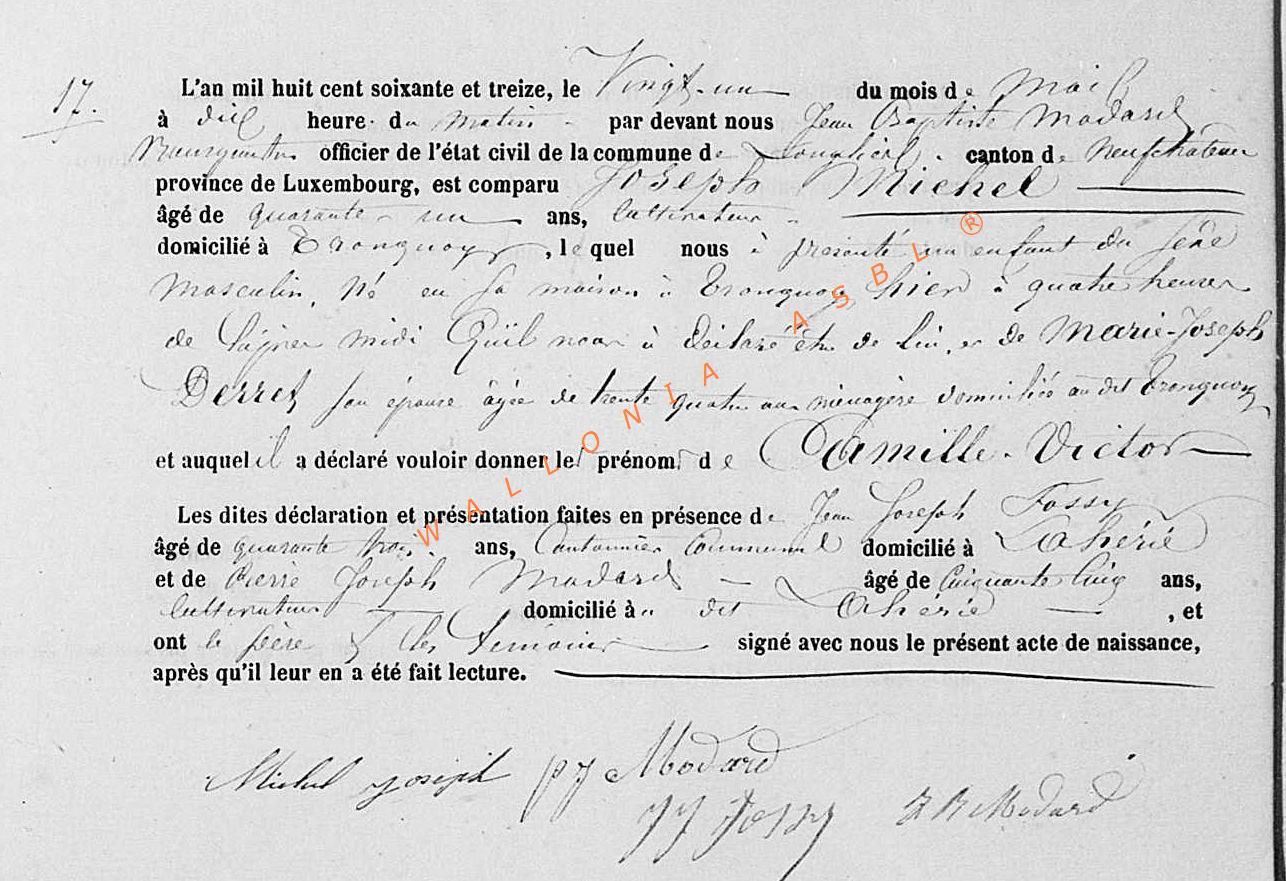 17.
L'an mil huit cent soixante et treize, le Vingt-un du mois de Mai
à dix heure du matin par devant nous Jean Baptiste Modard
Bourgmestre officier de l'état civil de la commune de Longlier canton de Neufchateau
province de Luxembourg, est comparu Joseph Michel
âgé de quarante un ans, Cultivateur
domicilié à Tronquoy, lequel nous à présenté un enfant du sexe
Masculin, Né en sa maison à Tronquoy hier à quatre heures
de l'après midi Qu'il nous à déclaré être de lui, et de Marie-Joseph
Derret son épouse âgée de trente quatre ans ménagère domiciliée au dit Tronquoy
et auquel il a déclaré vouloir donner les prénoms de Camille-Victor
Les dites déclaration et présentation faites en présence de Jean Joseph Fossy
âgé de quarante trois ans, Cantonnier Communal domicilié à Lahérie
et de Pierre Joseph Modard âgé de Cinquante Cinq ans,
Cultivateur domicilié au dit Lahérie, et
ont le père & les témoins signé avec nous le présent acte de naissance,
après qu'il leur en a été fait lecture.
Michel joseph pj Modard
JJ Fossy J B Modard
WALLONIA ASBL ®